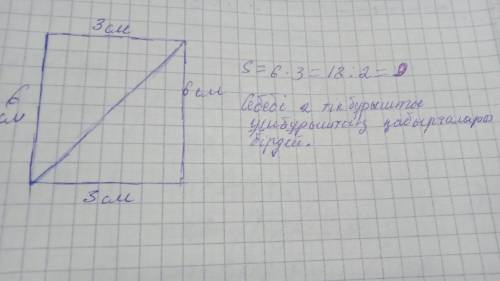 3 см
6 см
6 см
3 см
S = 6 · 3 = 18 : 2 = 9
Себебі 2 тікбұрышты
үшбұрыштың қабырғалары
бірдей.